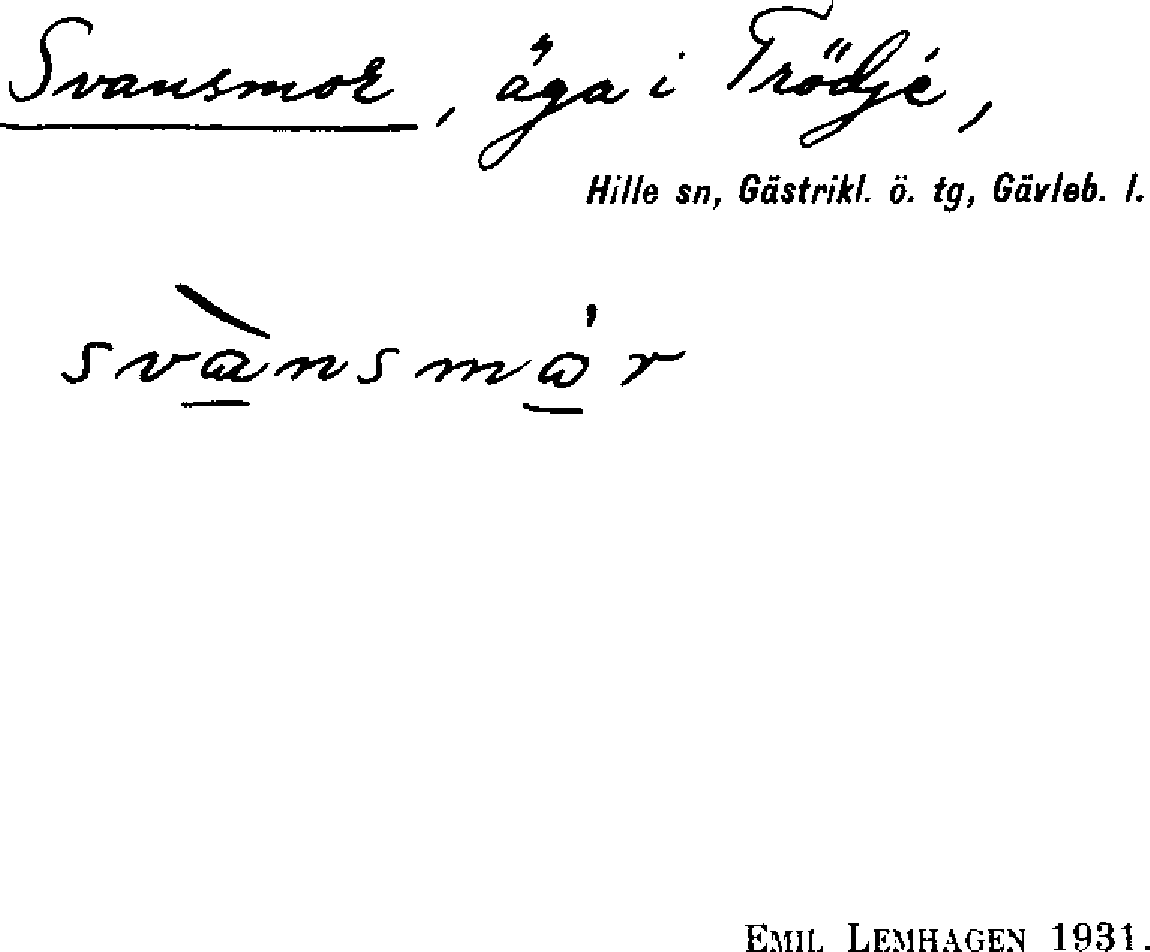 Svansmor, äga i Trödje,
Hille sn, Gästrikl. ö. tg, Gävleb. l.
EMIL LEMHAGEN 1931.